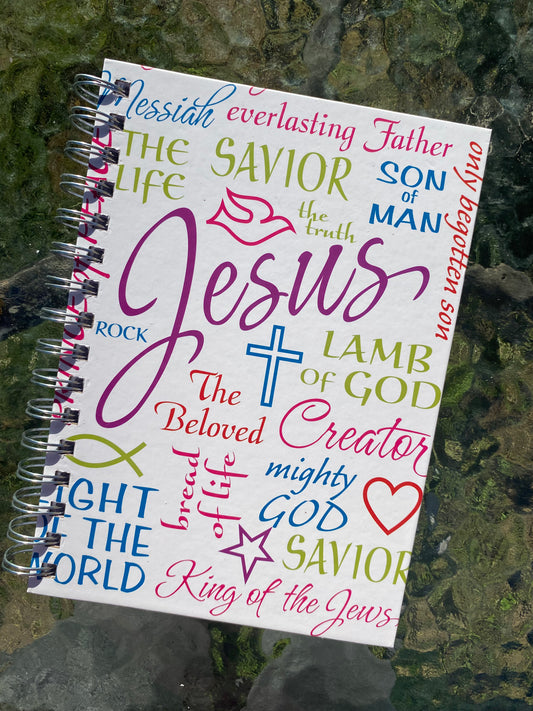 Messiah
everlasting Father
THE
LIFE
SAVIOR
SON
of
MAN
only begotten son
the
truth
Jesus
PRINCE OF PEACE
ROCK
LAMB
OF GOD
The
Beloved
Creator
bread
of life
mighty
GOD
IGHT
OF THE
WORLD
SAVIOR
King of the Jews